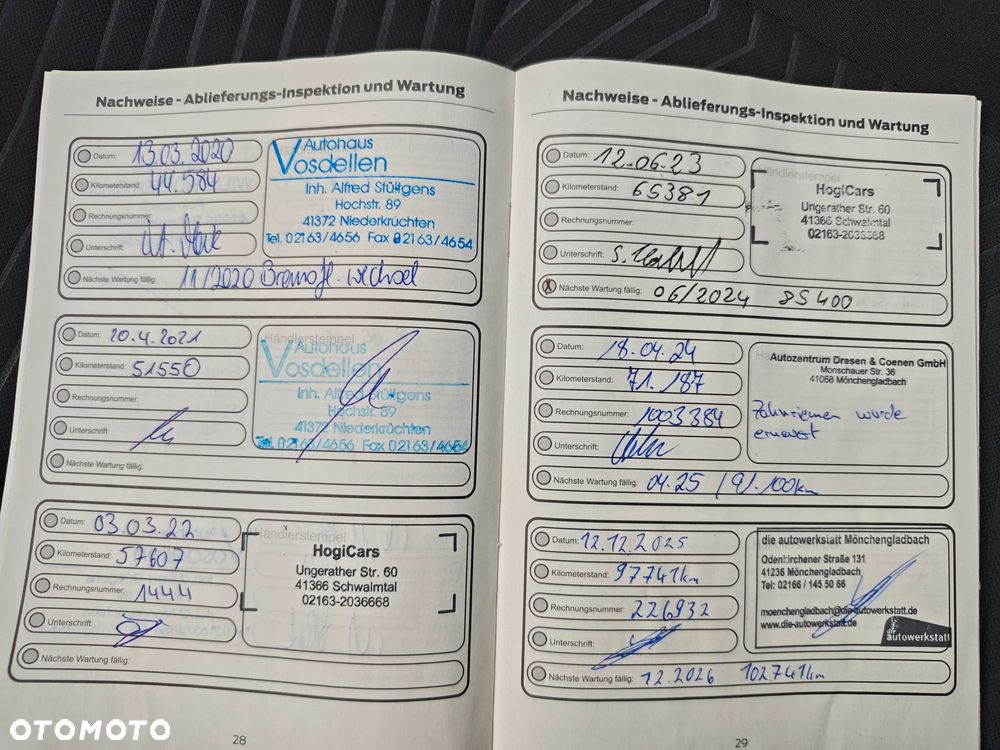 Nachweise - Ablieferungs-Inspektion und Wartung
Datum: 13.03.2020
Kilometerstand: 44.584
Rechnungsnummer:
Unterschrift:
Nächste Wartung fällig: 11/2020 Bremsfl. wechsel
Autohaus
Vosdellen
Inh. Alfred Stüttgens
Hochstr. 89
41372 Niederkrüchten
Tel. 02163/4656 Fax 02163/4654
Datum: 20.4.2021
Kilometerstand: 51550
Rechnungsnummer:
Unterschrift:
Nächste Wartung fällig:
Händlerstempel
Autohaus
Vosdellen
Inh. Alfred Stüttgens
Hochstr. 89
41372 Niederkrüchten
Tel. 02163/4656 Fax 02163/4654
Datum: 03.03.22
Kilometerstand: 57607
Rechnungsnummer: 1444
Unterschrift:
Nächste Wartung fällig:
Händlerstempel
HogiCars
Ungerather Str. 60
41366 Schwalmtal
02163-2036668
28
Nachweise - Ablieferungs-Inspektion und Wartung
Datum: 12.06.23
Kilometerstand: 65381
Rechnungsnummer:
Unterschrift:
X Nächste Wartung fällig: 06/2024 85400
Händlerstempel
HogiCars
Ungerather Str. 60
41366 Schwalmtal
02163-2036668
Datum: 18.04.24
Kilometerstand: 71.187
Rechnungsnummer: 1003384
Unterschrift:
Nächste Wartung fällig: 04.25 / 91.100km
Autozentrum Dresen & Coenen GmbH
Monschauer Str. 36
41068 Mönchengladbach
Zahnriemen wurde
erneuert
Datum: 12.12.2025
Kilometerstand: 97741km
Rechnungsnummer: 226932
Unterschrift:
Nächste Wartung fällig: 12.2026 102741km
die autowerkstatt Mönchengladbach
Odenkirchener Straße 131
41236 Mönchengladbach
Tel: 02166 / 145 50 66
moenchengladbach@die-autowerkstatt.de
www.die-autowerkstatt.de
autowerkstatt
29
OTOMOTO